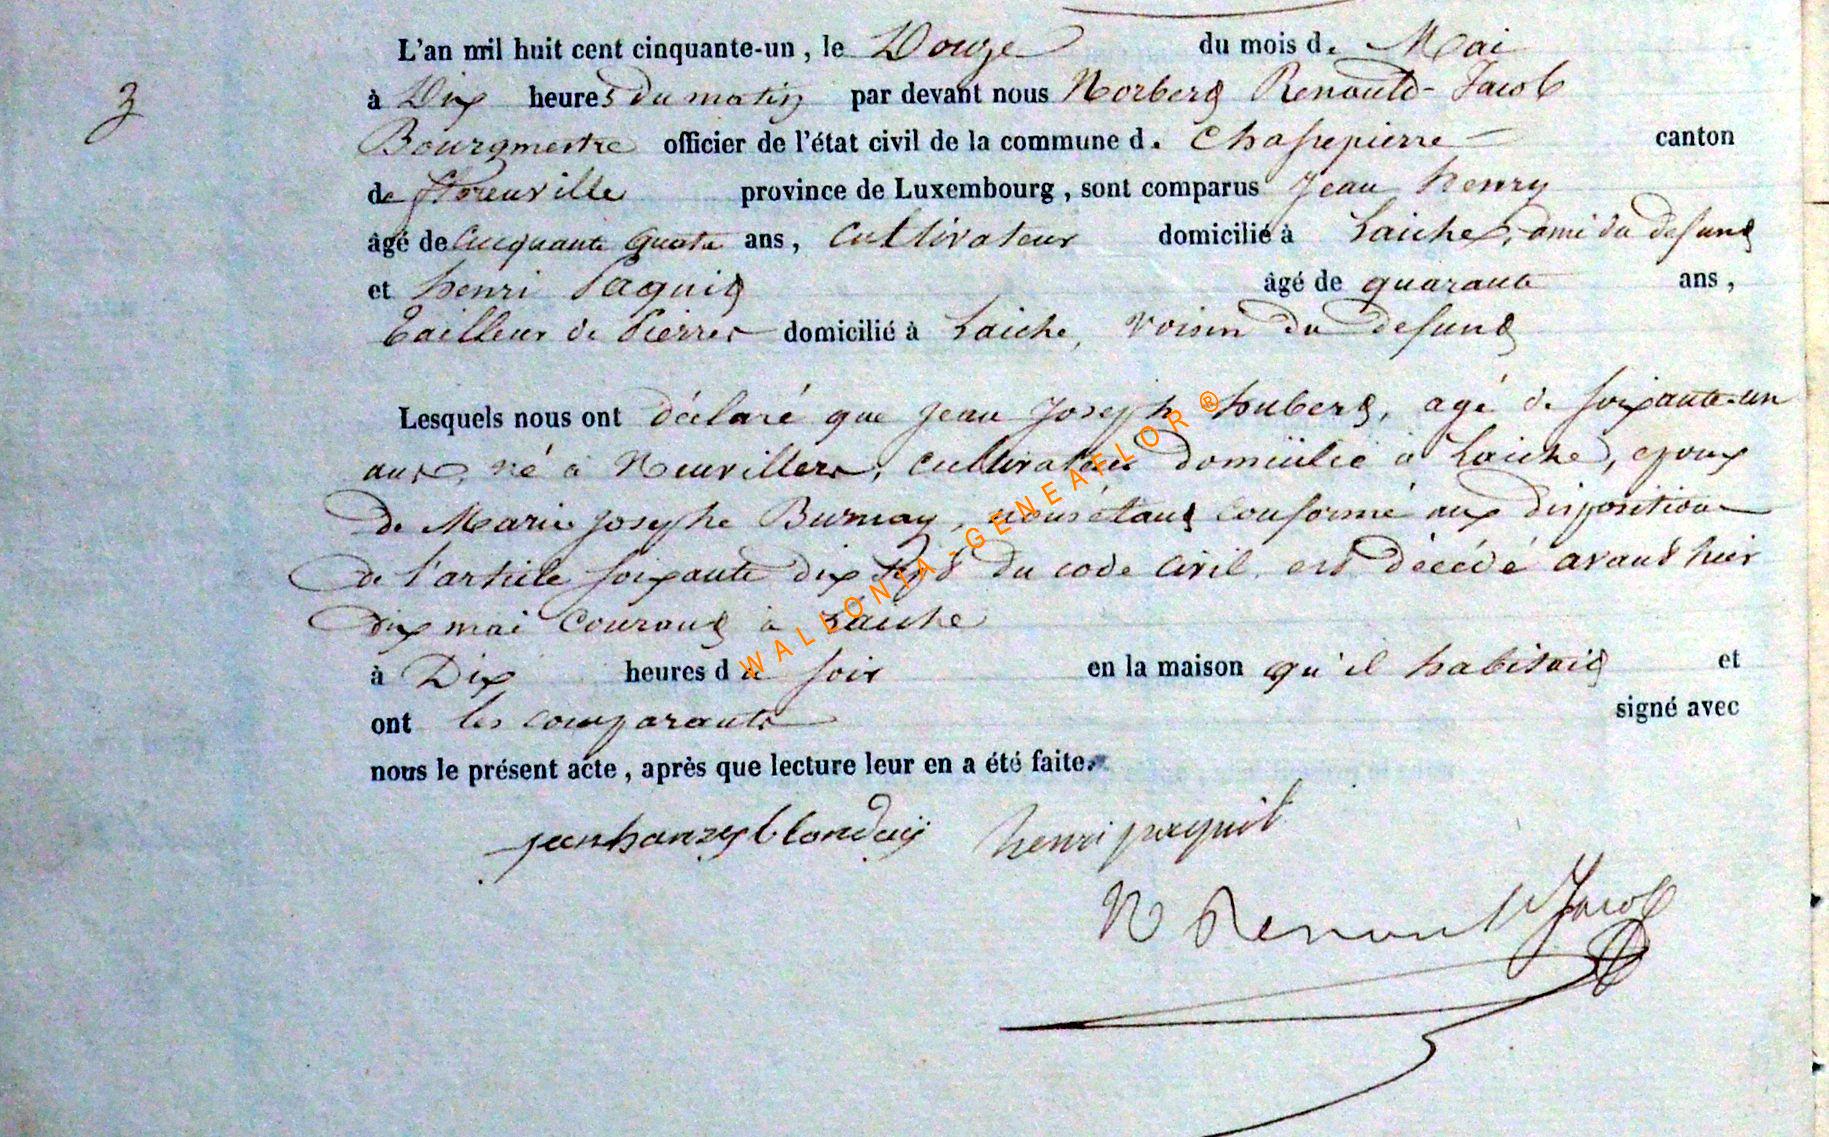 L'an mil huit cent cinquante-un, le Douze du mois d. Mai
3
à Dix heures du matin par devant nous Norbert Renauld-Jacob
Bourgmestre officier de l'état civil de la commune d. Chassepierre canton
de florenville province de Luxembourg, sont comparus Jean henry
âgé de cinquante quatre ans, Cultivateur domicilié à Laiche, ami du defunt
et henri Paquit âgé de quarante ans,
tailleur de Pierres domicilié à Laiche, voisin du defunt
Lesquels nous ont déclaré que Jean Joseph hubert, agé de soixante-un
ans, né à Neuvillers, cultivateur domicilié à Laiche, epoux
de Marie Josephe Burnay, nous étant conformé aux disposition
de l'article soixante dix sept du code civil, est décédé avant hier
dix mai courant à Laiche
à Dix heures du soir en la maison qu'il habitait et
ont les comparants signé avec
nous le présent acte, après que lecture leur en a été faite.
henri paquit
N Renauld Jacob
WALLONIA-GENEAFLOR ®